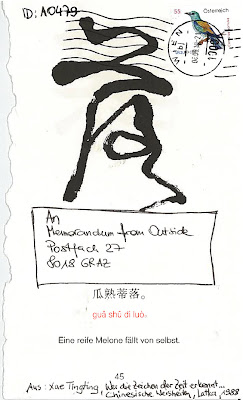 ID: A0479
55 Österreich
WIEN
落
An
Memorandum from Outside
Postfach 27
8018 GRAZ
瓜熟蒂落。
guā shú dì luò
Eine reife Melone fällt von selbst.
45
Aus: Xue Tingting, Wer die Zeichen der Zeit erkennt...
Chinesische Weisheiten, Latka, 1988